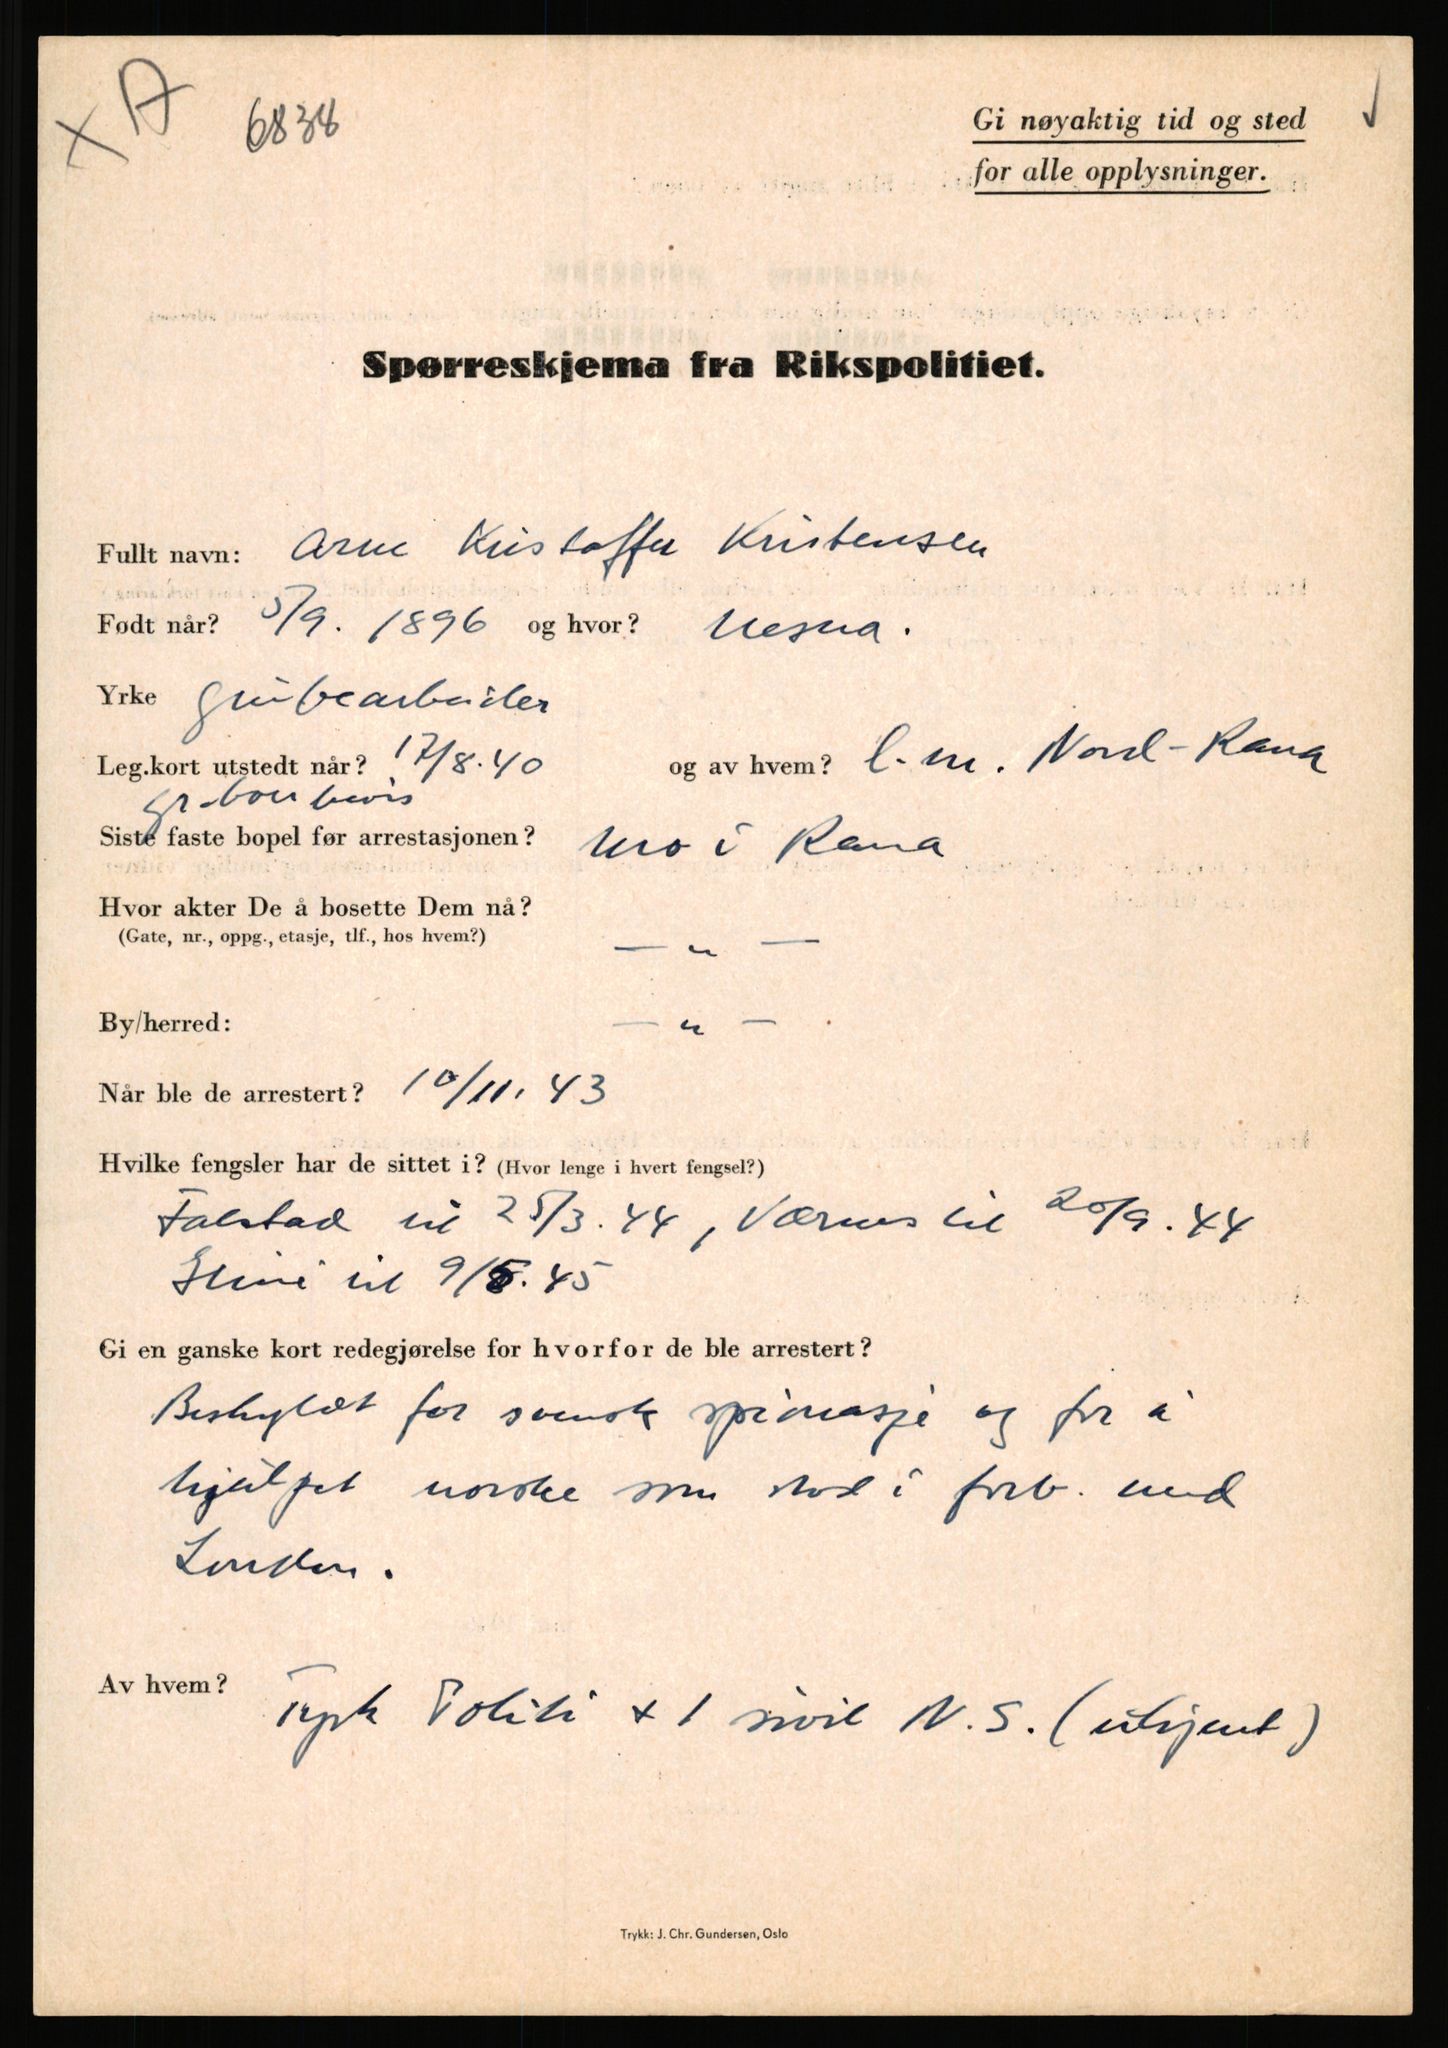 x A 6838
Gi nøyaktig tid og sted
for alle opplysninger.
Spørreskjema fra Rikspolitiet.
Fullt navn: Arne Kristoffer Kristensen
Født når? 5/9. 1896 og hvor? Nesna.
Yrke grubearbeider
Leg.kort utstedt når? 17/8.40 og av hvem? l.m. Nord-Rana
gr.boerbevis
Siste faste bopel før arrestasjonen? Mo i Rana
Hvor akter De å bosette Dem nå?
(Gate, nr., oppg., etasje, tlf., hos hvem?) — „ —
By/herred: — „ —
Når ble de arrestert? 10/11.43
Hvilke fengsler har de sittet i? (Hvor lenge i hvert fengsel?)
Falstad til 25/3.44, Værnes til 20/9.44
Grini til 9/5.45
Gi en ganske kort redegjørelse for hvorfor de ble arrestert?
Beskyldt for svensk spionasje og for å
hjulpet norske som stod i forb. med
London.
Av hvem? Tysk Politi + 1 sivil N.S. (ukjent)
Trykk: J. Chr. Gundersen, Oslo